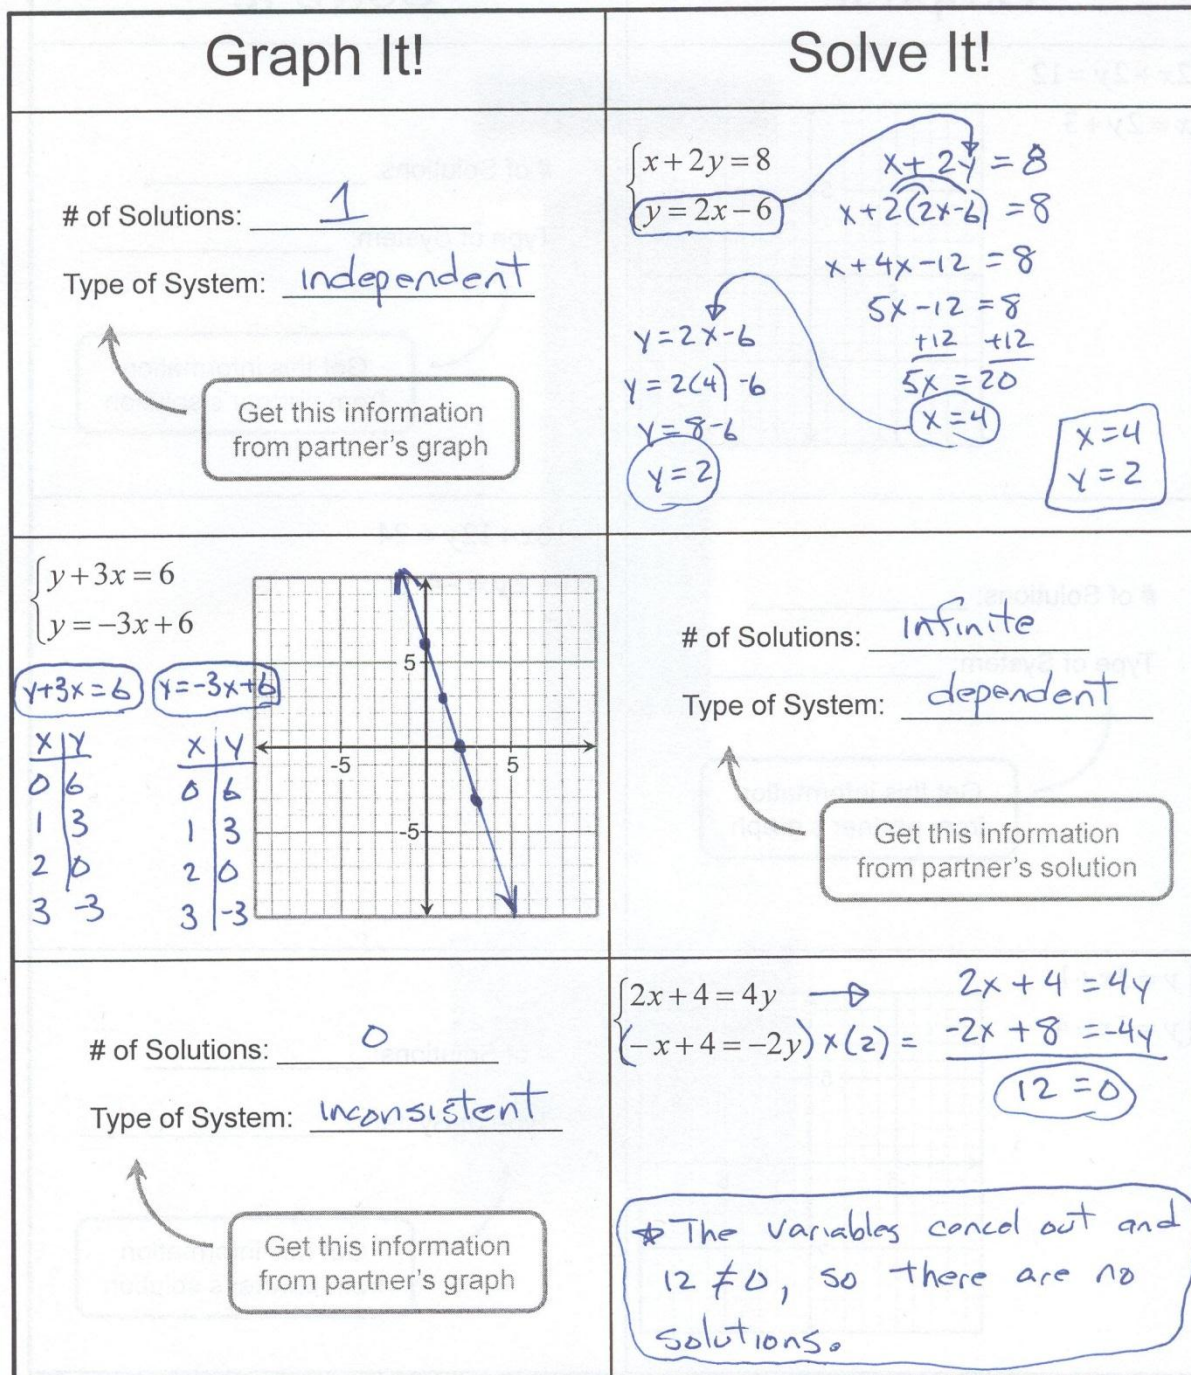 Graph It!
Solve It!
# of Solutions: 1
Type of System: independent
Get this information
from partner's graph
x + 2y = 8
y = 2x − 6
x + 2y = 8
x + 2(2x-6) = 8
x + 4x - 12 = 8
5x - 12 = 8
+12 +12
5x = 20
x = 4
y = 2x - 6
y = 2(4) - 6
y = 8 - 6
y = 2
x = 4
y = 2
y + 3x = 6
y = −3x + 6
y+3x=6
y=-3x+6
x y
0 6
1 3
2 0
3 -3
x y
0 6
1 3
2 0
3 -3
5
-5
5
-5
# of Solutions: infinite
Type of System: dependent
Get this information
from partner's solution
# of Solutions: 0
Type of System: inconsistent
Get this information
from partner's graph
2x + 4 = 4y
(−x + 4 = −2y) x(2) =
2x + 4 = 4y
-2x + 8 = -4y
12 = 0
* The variables cancel out and
12 ≠ 0, so there are no
solutions.